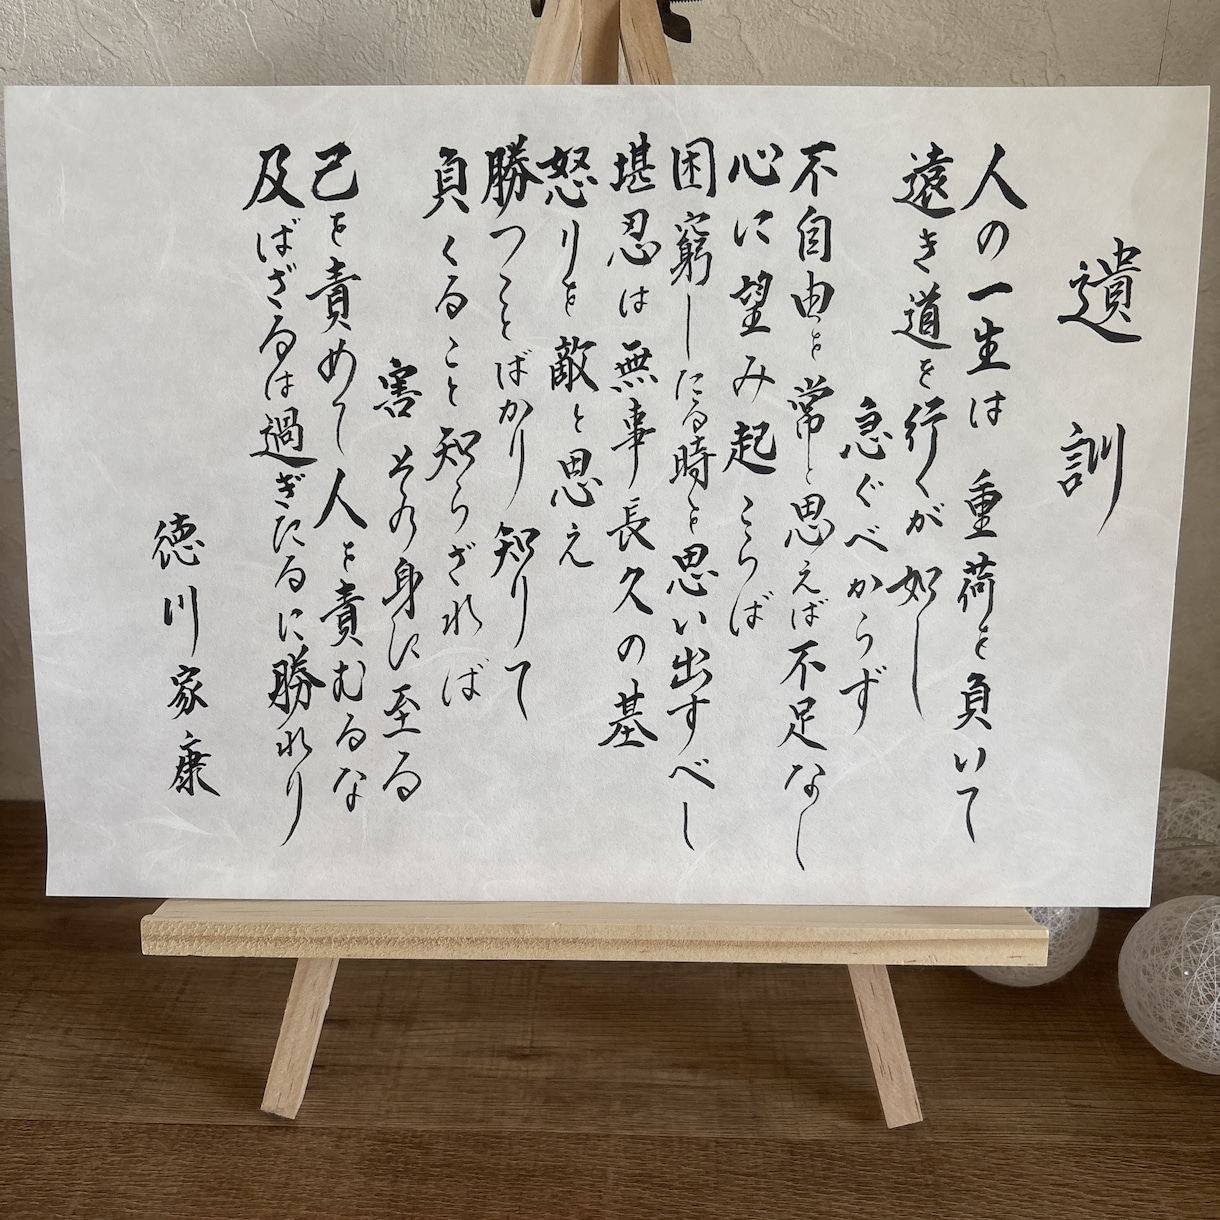 遺訓
人の一生は重荷を負いて
遠き道を行くが如し
急ぐべからず
不自由を常と思えば不足なし
心に望み起こらば
困窮したる時を思い出すべし
堪忍は無事長久の基
怒りを敵と思え
勝つことばかり知りて
負くること知らざれば
害その身に至る
己を責めて人を責むるな
及ばざるは過ぎたるに勝れり
徳川家康